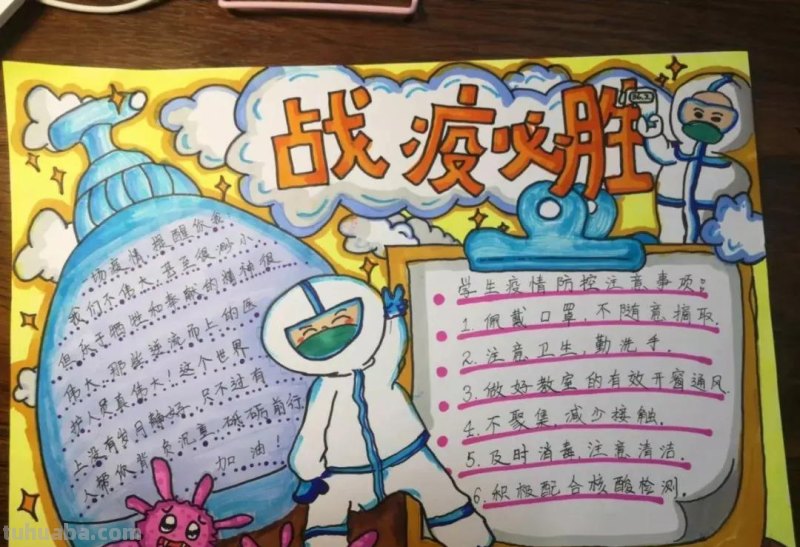 战疫必胜
一场疫情提醒你我!
我们不伟大,甚至很渺小
但乐于牺牲和奉献的精神很
伟大,那些逆流而上的医
护人员真伟大!这个世界
上没有岁月静好,只不过有
人替你背负沉重,砥砺前行
加油!
学生疫情防控注意事项:
1.佩戴口罩,不随意摘取.
2.注意卫生,勤洗手.
3.做好教室的有效开窗通风
4.不聚集,减少接触.
5.及时消毒,注意清洁.
6.积极配合核酸检测.
tuhuaba.com